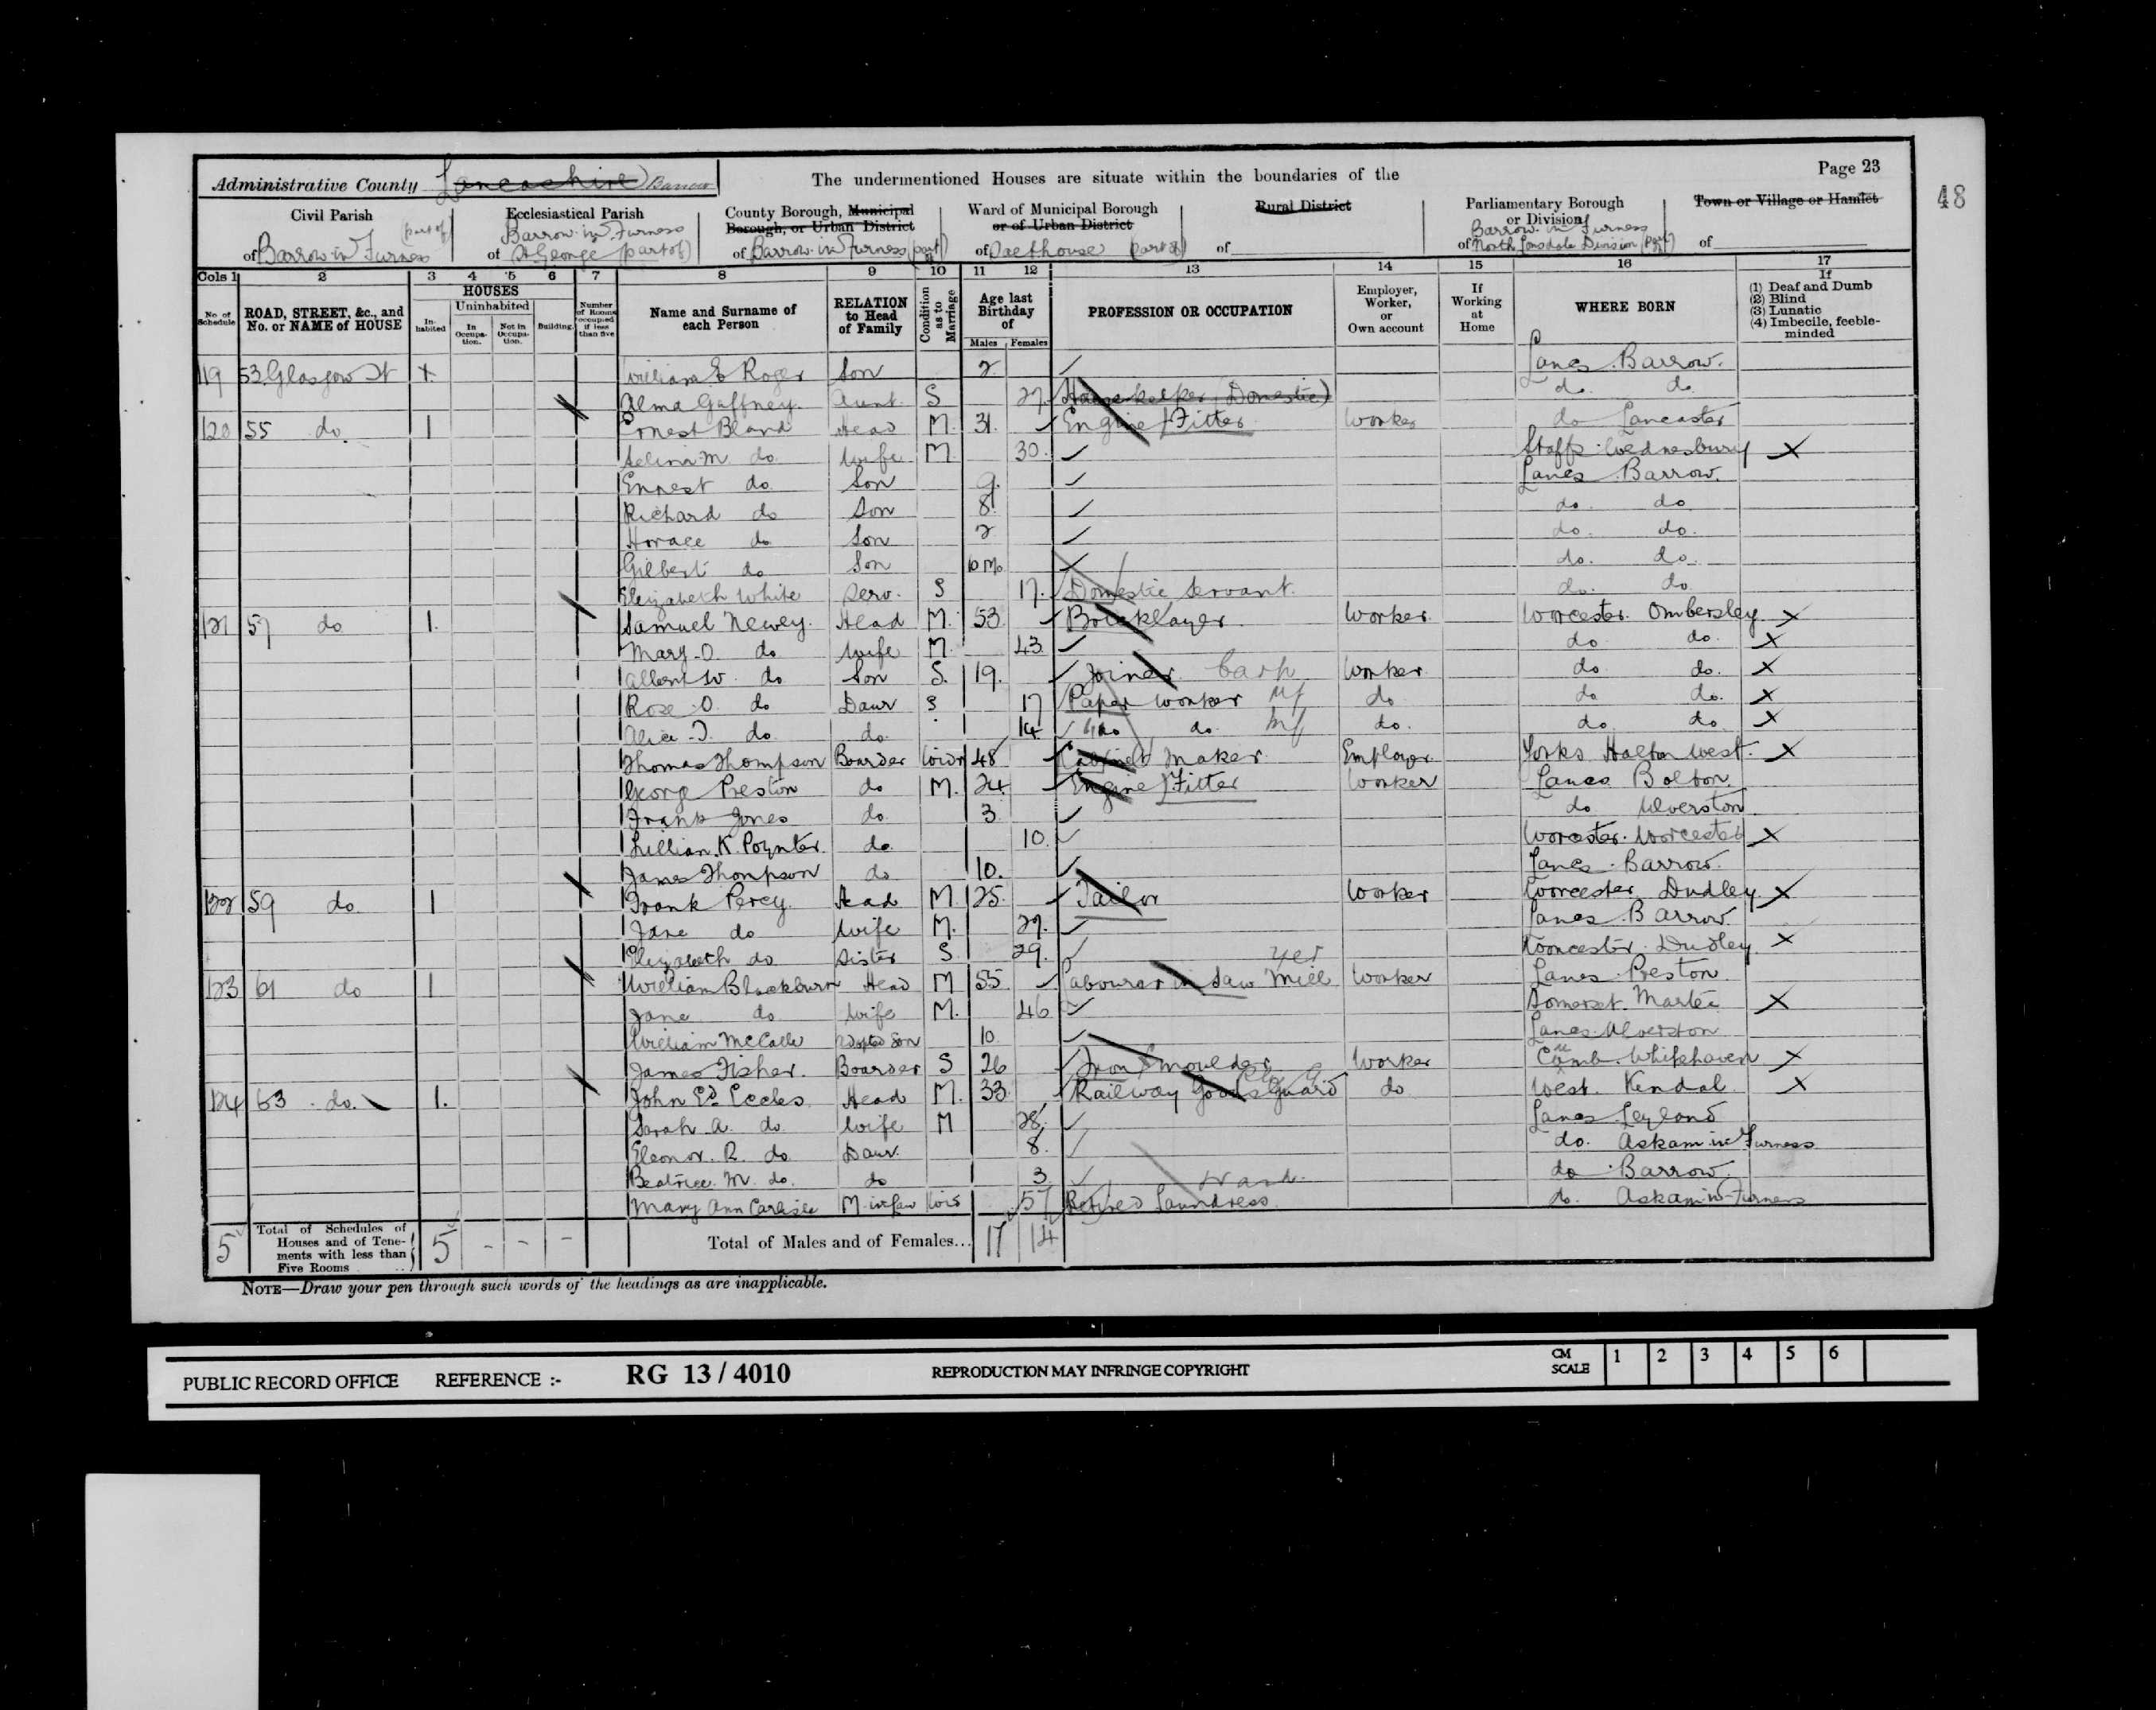 Page 23
48
Administrative County Lancashire Barrow
The undermentioned Houses are situate within the boundaries of the
Civil Parish
of Barrow in Furness (part of)
Ecclesiastical Parish
of Barrow in Furness St George (part of)
County Borough, Municipal Borough, or Urban District
of Barrow in Furness (part of)
Ward of Municipal Borough or of Urban District
of (part of)
Rural District
of
Parliamentary Borough or Division
of Barrow in Furness North Lonsdale Division (part of)
Town or Village or Hamlet
of
Cols 1 2 3 4 5 6 7 8 9 10 11 12 13 14 15 16 17
No. of Schedule
ROAD, STREET, &c., and No. or NAME of HOUSE
HOUSES
Inhabited
Uninhabited
In Occupation.
Not in Occupation.
Building.
Number of Rooms occupied if less than five
Name and Surname of each Person
RELATION to Head of Family
Condition as to Marriage
Age last Birthday of
Males Females
PROFESSION OR OCCUPATION
Employer, Worker, or Own account
If Working at Home
WHERE BORN
If
(1) Deaf and Dumb
(2) Blind
(3) Lunatic
(4) Imbecile, feeble-minded
119 53 Glasgow St X William E Roger Son 2 Lancs Barrow.
Alma Gaffney Aunt S 27 Housekeeper (Domestic) do. do
120 55 do. 1 Ernest Bland Head M. 31. Engine Fitter Worker do Lancaster
Selina M do Wife M. 30. Staffs Wednesbury X
Ernest do Son 9. Lancs Barrow.
Richard do Son 8. do. do
Horace do Son 2 do. do.
Gilbert do Son 10 Mo. do. do.
Elizabeth White Serv. S 17. Domestic Servant. do. do
121 57 do 1. Samuel Newey. Head M. 53 Bricklayer Worker. Worcester. Ombersley X
Mary O. do Wife M. 43 do do. X
Albert W. do Son S. 19. Joiner Carp Worker do do. X
Rose O. do Daur S 17 Paper Worker Mf do do do. X
Alice do. do. 14 do do. Mf do. do. do. X
Thomas Thompson Boarder Widr 48 Cabinet Maker Employer Yorks Halton West. X
George Preston do M. 24 Engine Fitter Worker Lancs Bolton.
Frank Jones do. 3 do Ulverston
Lillian K. Poynter. do 10. Worcester. Worcester X
James Thompson do 10. Lancs. Barrow.
122 59 do 1 Frank Percy. Head M. 25. Tailor Worker Worcester Dudley X
Jane do Wife M. 27. Lancs Barrow
Elizabeth do Sister S 29. Worcester. Dudley. X
123 61 do 1 William Blackburn Head M 55 Labourer in Saw Mill yer Worker Lancs Preston
Jane do. Wife M. 46 Somerset. X
William McCall Adopted Son 10 Lancs Ulverston
James Fisher. Boarder S 26 Iron Moulder Worker Cumb. Whitehaven X
124 63 do. 1. John Ed. Eccles Head M. 33 Railway Goods Guard do West. Kendal X
Sarah A. do. Wife M 28 Lancs Leyland
Eleanor. R. do Daur. 8. do. Askam in Furness
Beatrice. M. do. do 3 do Barrow
Mary Ann Carlisle M in law Wid 57 Retired Laundress do. Askam in Furness
5 Total of Schedules of Houses and of Tenements with less than Five Rooms 5 - - - Total of Males and of Females... 17 14
NOTE—Draw your pen through such words of the headings as are inapplicable.
PUBLIC RECORD OFFICE REFERENCE :- RG 13 / 4010 REPRODUCTION MAY INFRINGE COPYRIGHT CM SCALE 1 2 3 4 5 6